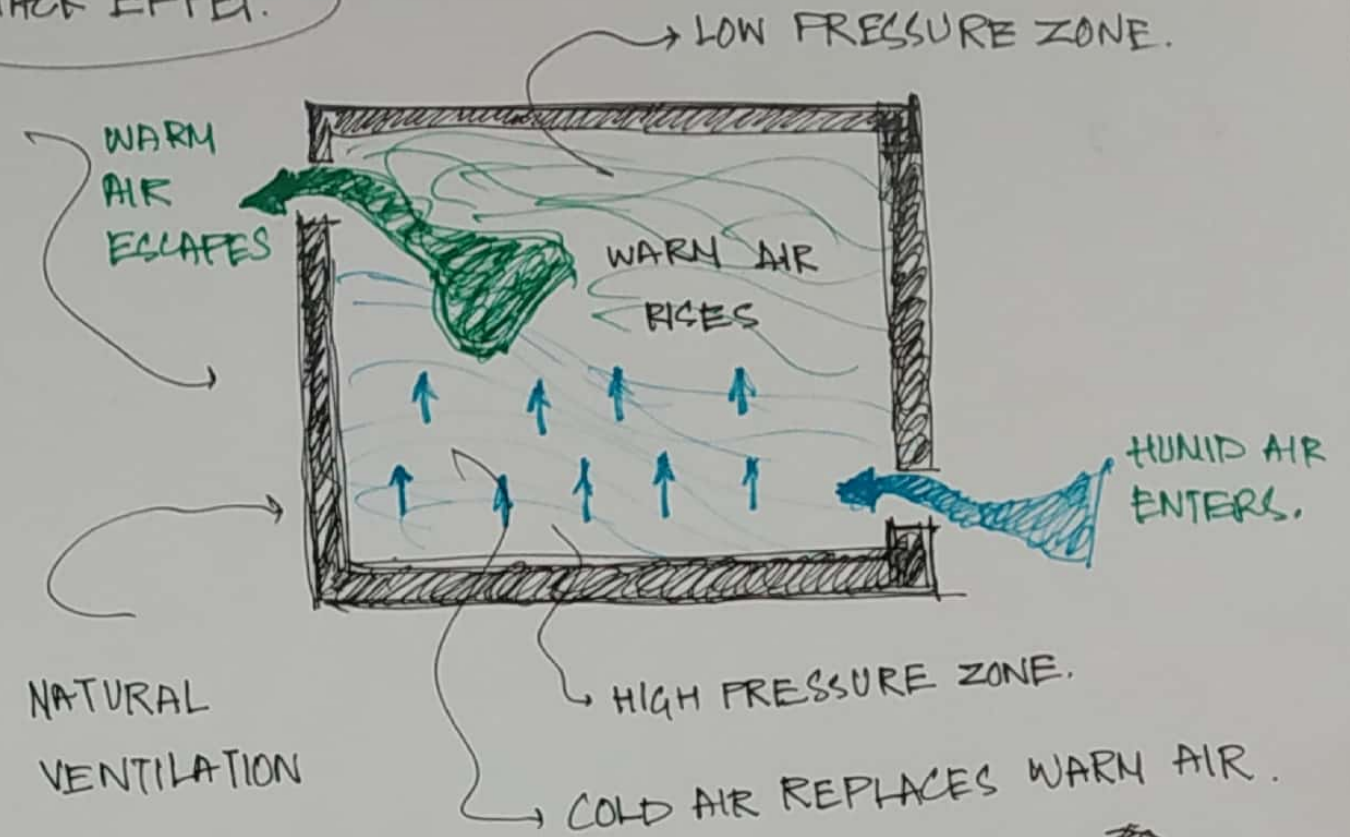 EFFECT.
LOW PRESSURE ZONE.
WARM
AIR
ESCAPES
WARM AIR
RISES
HUMID AIR
ENTERS.
HIGH PRESSURE ZONE.
NATURAL
VENTILATION
COLD AIR REPLACES WARM AIR.